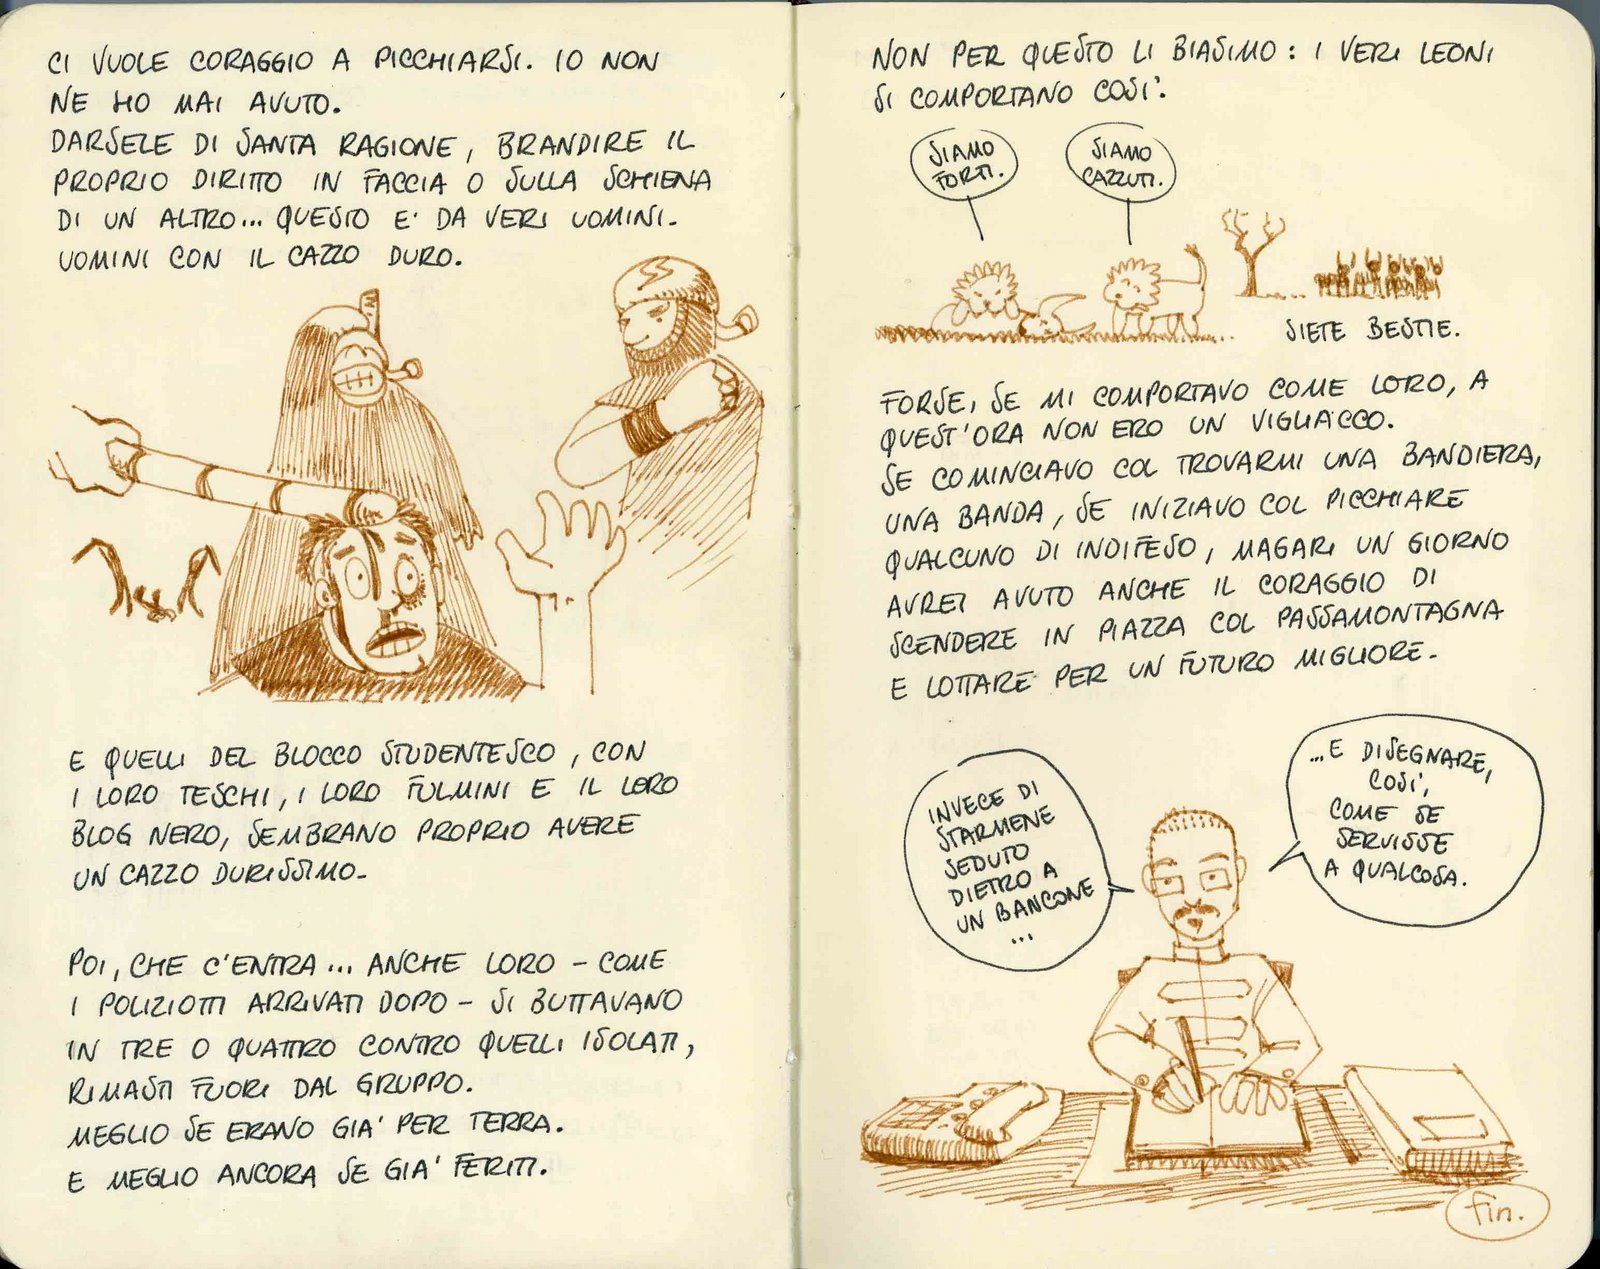 CI VUOLE CORAGGIO A PICCHIARSI. IO NON
NE HO MAI AVUTO.
DARSELE DI SANTA RAGIONE, BRANDIRE IL
PROPRIO DIRITTO IN FACCIA O SULLA SCHIENA
DI UN ALTRO... QUESTO E' DA VERI UOMINI.
UOMINI CON IL CAZZO DURO.
E QUELLI DEL BLOCCO STUDENTESCO, CON
I LORO TESCHI, I LORO FULMINI E IL LORO
BLOG NERO, SEMBRANO PROPRIO AVERE
UN CAZZO DURISSIMO.
POI, CHE C'ENTRA... ANCHE LORO - COME
I POLIZIOTTI ARRIVATI DOPO - SI BUTTAVANO
IN TRE O QUATTRO CONTRO QUELLI ISOLATI,
RIMASTI FUORI DAL GRUPPO.
MEGLIO SE ERANO GIA' PER TERRA.
E MEGLIO ANCORA SE GIA' FERITI.
NON PER QUESTO LI BIASIMO: I VERI LEONI
SI COMPORTANO COSI'.
SIAMO
FORTI.
SIAMO
CAZZUTI.
SIETE BESTIE.
FORSE, SE MI COMPORTAVO COME LORO, A
QUEST'ORA NON ERO UN VIGLIACCO.
SE COMINCIAVO COL TROVARMI UNA BANDIERA,
UNA BANDA, SE INIZIAVO COL PICCHIARE
QUALCUNO DI INDIFESO, MAGARI UN GIORNO
AVREI AVUTO ANCHE IL CORAGGIO DI
SCENDERE IN PIAZZA COL PASSAMONTAGNA
E LOTTARE PER UN FUTURO MIGLIORE.
INVECE DI
STARMENE
SEDUTO
DIETRO A
UN BANCONE
...
...E DISEGNARE,
COSI',
COME SE
SERVISSE
A QUALCOSA.
fin.